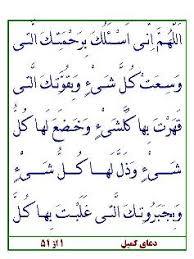 اَللّهُمَّ اِنّى اَسْئَلُكَ بِرَحْمَتِكَ الَّتى
وَسِعَتْ كُلَّ شَىْءٍ وَبِقُوَّتِكَ الَّتى
قَهَرْتَ بِها كُلَّشَىْءٍ وَخَضَعَ لَها كُلُّ
شَىْءٍ وَذَلَّ لَها كُلُّ شَىْءٍ
وَبِجَبَرُوتِكَ الَّتى غَلَبْتَ بِها كُلَّ
دعای کمیل
۱ از ۵۱